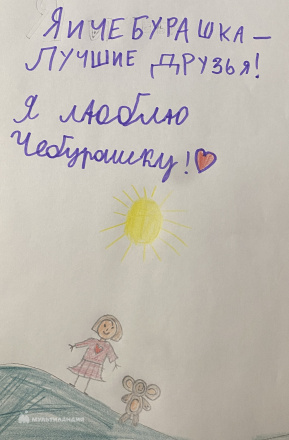 Я И ЧЕБУРАШКА –
ЛУЧШИЕ ДРУЗЬЯ!
Я люблю
Чебурашку!
МУЛЬТЛАНДИЯ